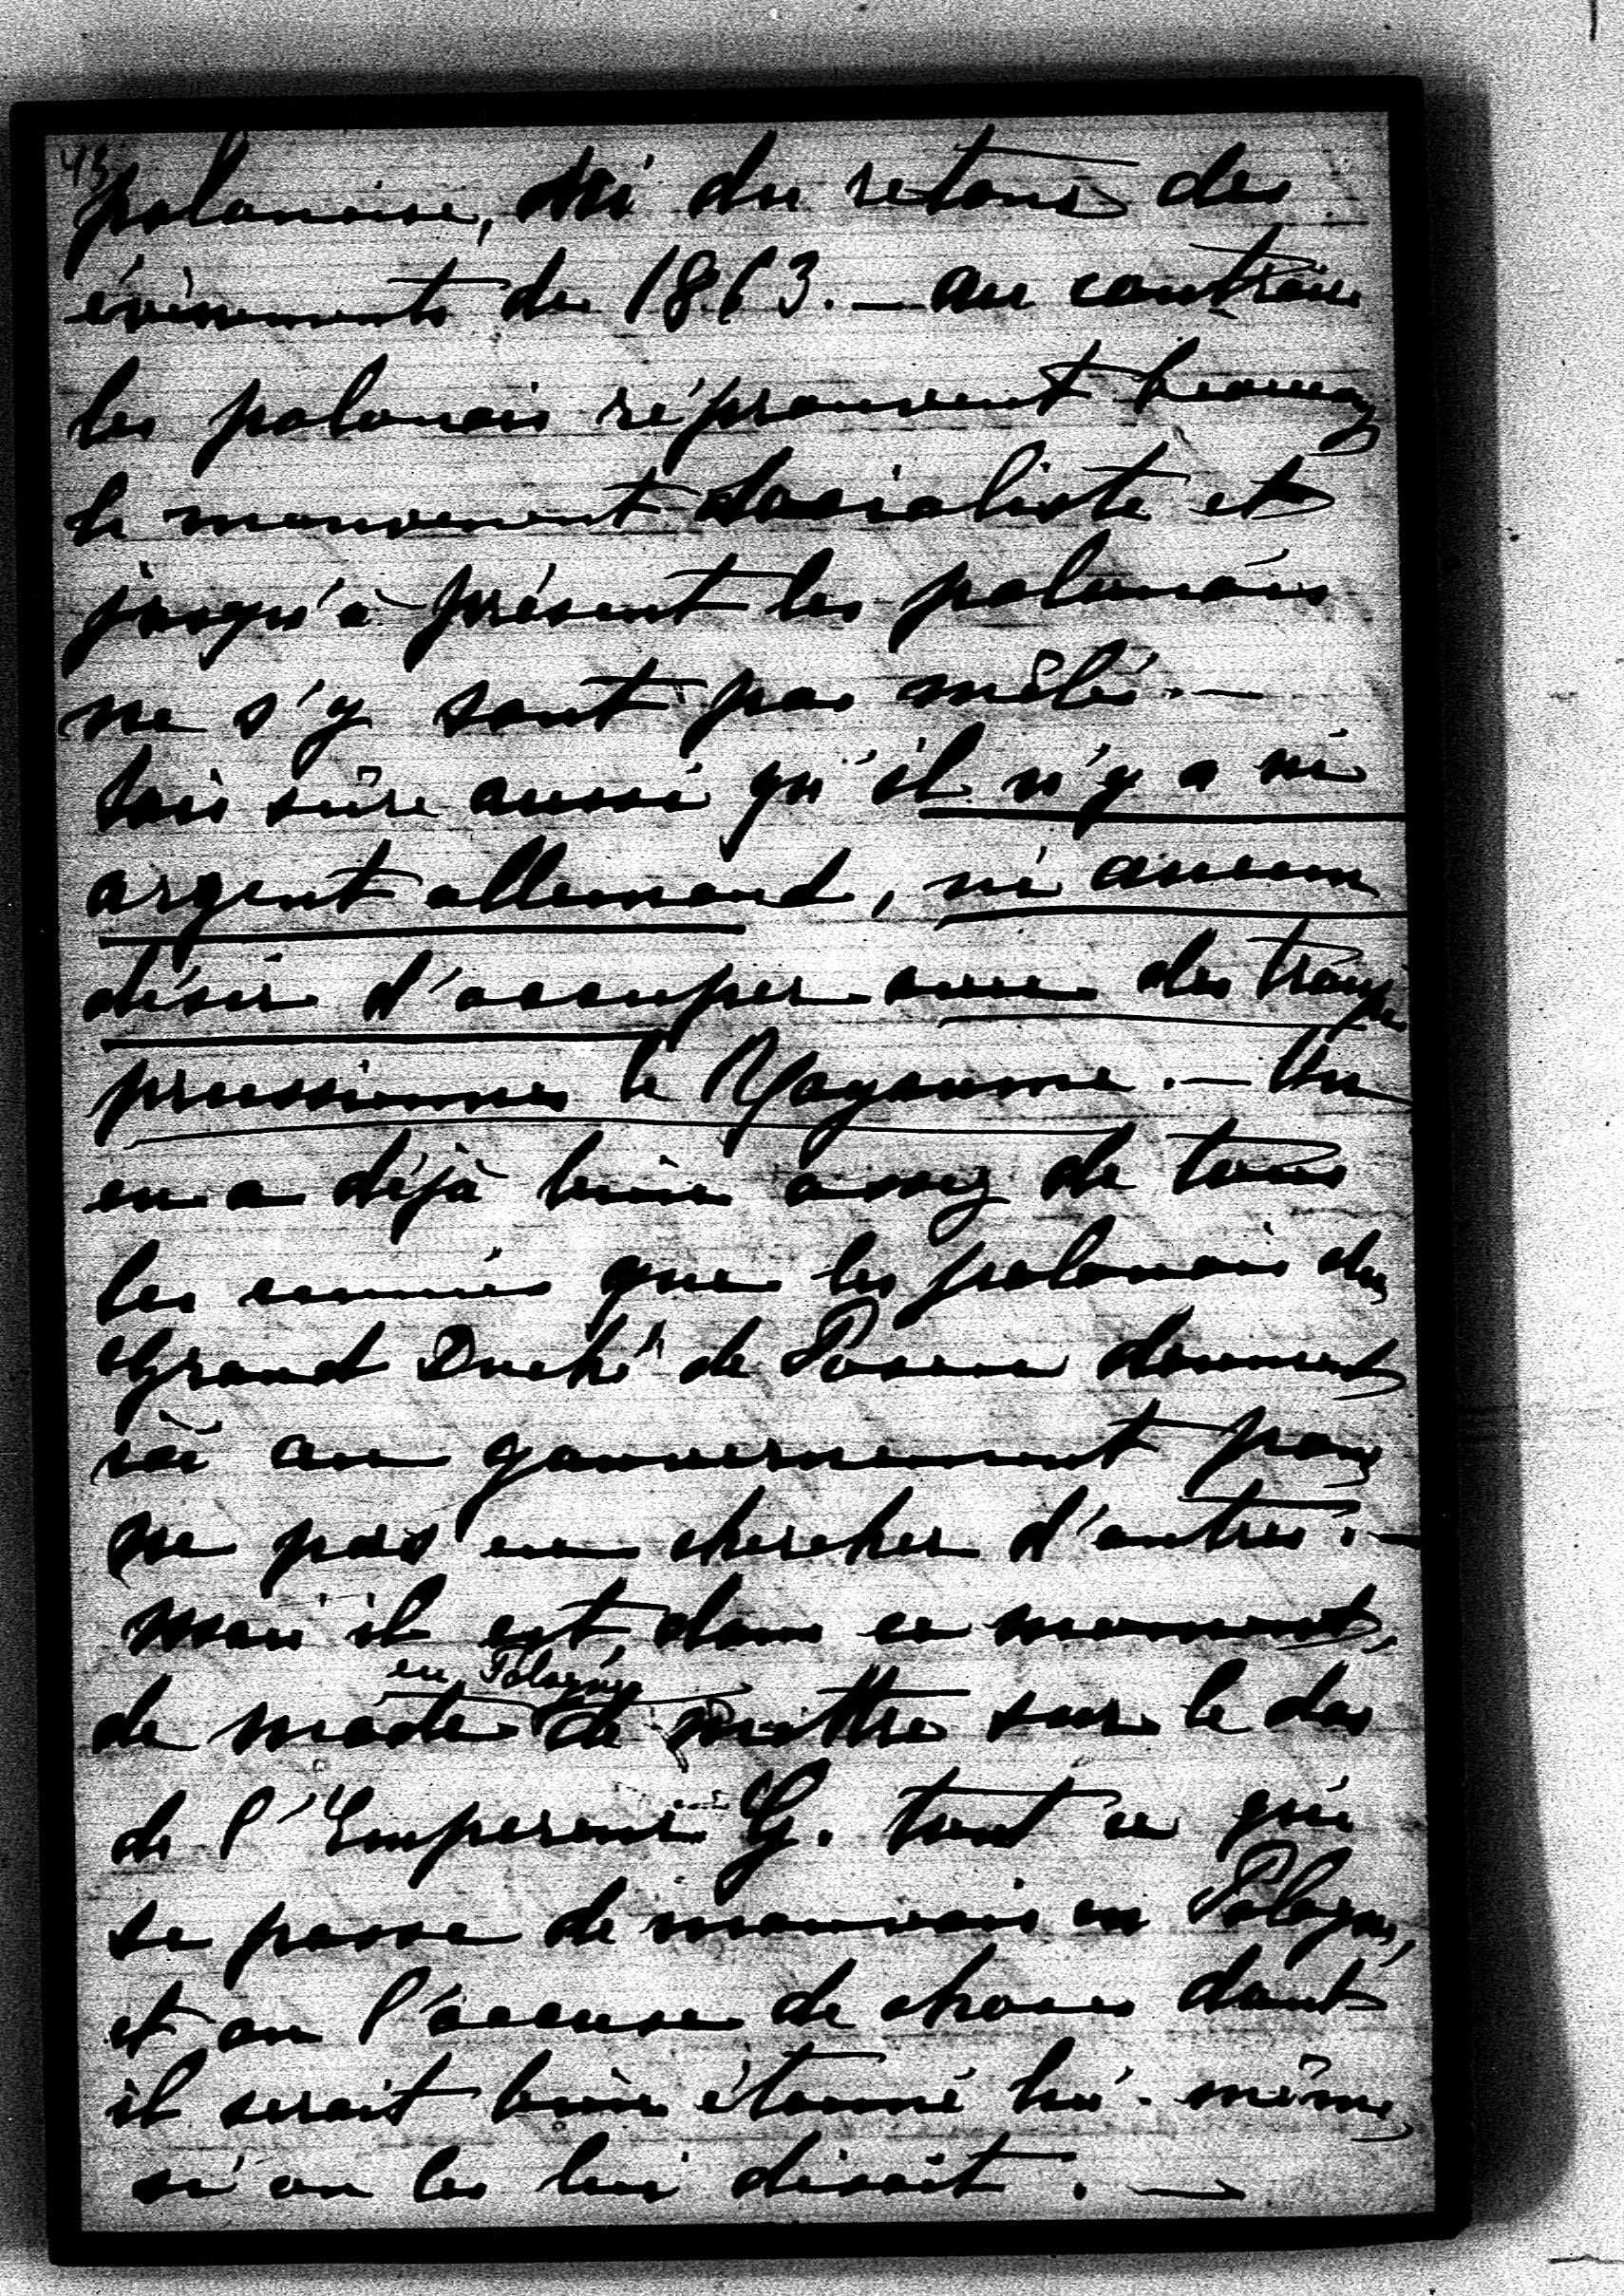 43
polonaise, ni du retour des
évènements de 1863. — Au contraire
les polonais réprouvent beaucoup
le mouvement socialiste et
jusqu'à présent les polonais
ne s'y sont pas mêlé. —
Sois sûre aussi qu'il n'y a ni
argent allemand, ni aucun
désir d'occuper avec des troupes
prussiennes le Royaume. — On
en a déjà bien assez de tous
les ennuis que les polonais du
Grand Duché de Posen donnent
ici au gouvernement pour
ne pas en chercher d'autres. —
Mais il est, dans ce moment,
en Pologne
de mode de mettre sur le dos
de l'Empereur G. tout ce qui
se passe de mauvais en Pologne,
et on l'accuse de choses dont
il serait bien étonné lui-même,
si on les lui disait. —